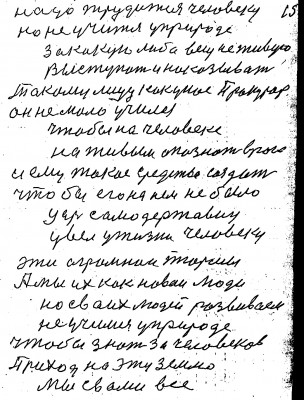 надо трудится человеку 15
но не учится у природе
за какую либо вещ не живую
выступат и наказыват
такому лицу как у нас прокурор
он не мало училея
чтобы на человеке
на живым опознат врага
и ему такое средства создат
что бы его на нем не было
Уар самодержавич
увел ужизни человеку
эти огромнои теории
Амы их как новаи люди
но сваих людей развиваем
не учился у природе
чтобы знат за человеков
Приход на эту землю
Мы свами все